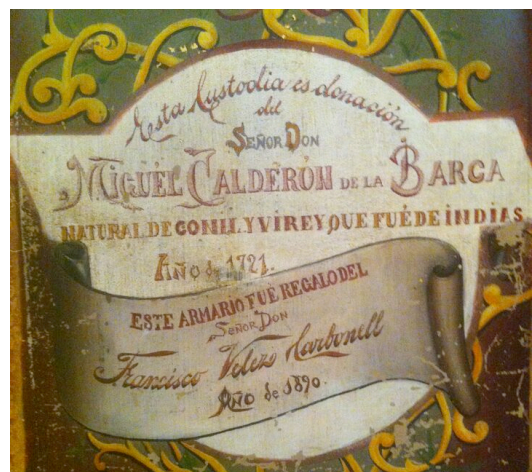 Esta Custodia es donación
del
SEÑOR DON
MIGUEL CALDERÓN DE LA BARCA
NATURAL DE CONIL Y VIREY QUE FUÉ DE INDIAS
Año de 1721.
ESTE ARMARIO FUÉ REGALO DEL
SEÑOR DON
Francisco Velezo Harbonell
AÑO de 1890.